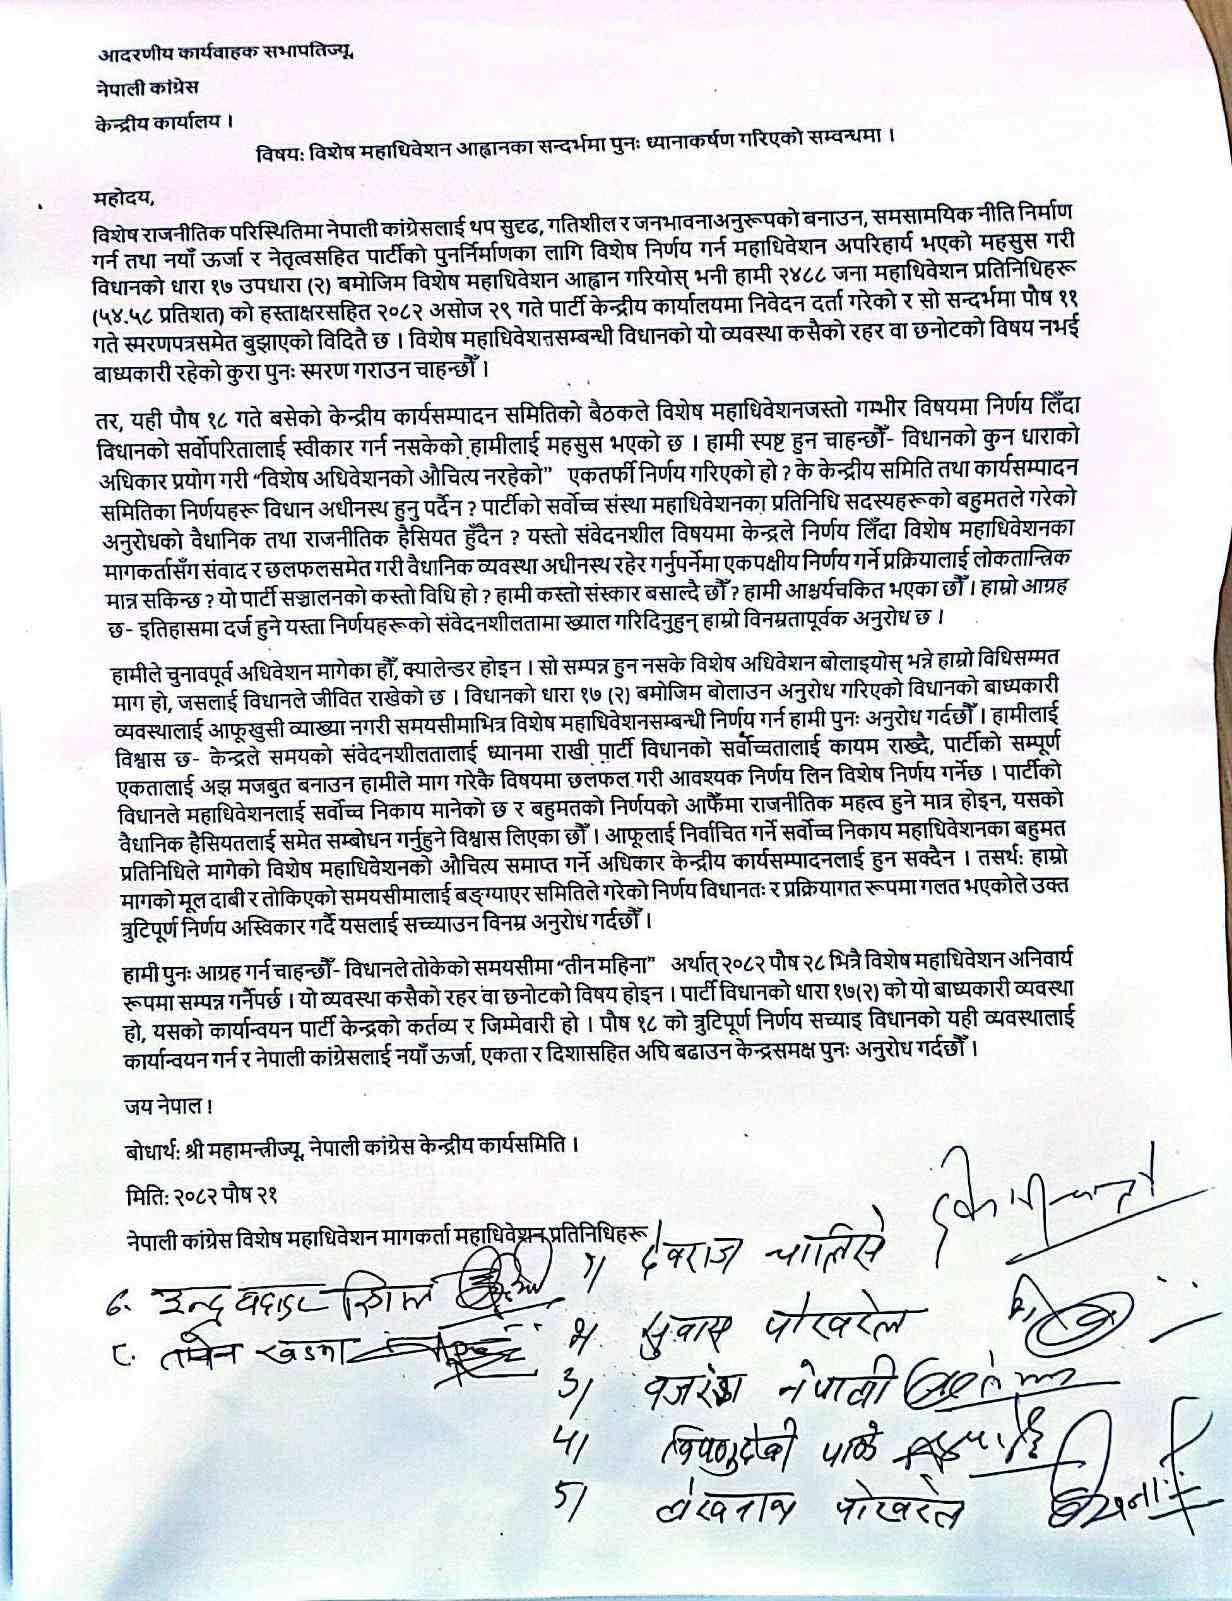 आदरणीय कार्यवाहक सभापतिज्यू,
नेपाली कांग्रेस
केन्द्रीय कार्यालय ।
विषय: विशेष महाधिवेशन आह्वानका सन्दर्भमा पुनः ध्यानाकर्षण गरिएको सम्वन्धमा ।
महोदय,
विशेष राजनीतिक परिस्थितिमा नेपाली कांग्रेसलाई थप सुदृढ, गतिशील र जनभावनाअनुरूपको बनाउन, समसामयिक नीति निर्माण
गर्न तथा नयाँ ऊर्जा र नेतृत्वसहित पार्टीको पुनर्निर्माणका लागि विशेष निर्णय गर्न महाधिवेशन अपरिहार्य भएको महसुस गरी
विधानको धारा १७ उपधारा (२) बमोजिम विशेष महाधिवेशन आह्वान गरियोस् भनी हामी २४८८ जना महाधिवेशन प्रतिनिधिहरू
(५४.५८ प्रतिशत) को हस्ताक्षरसहित २०८२ असोज २९ गते पार्टी केन्द्रीय कार्यालयमा निवेदन दर्ता गरेको र सो सन्दर्भमा पौष ११
गते स्मरणपत्रसमेत बुझाएको विदितै छ । विशेष महाधिवेशनसम्बन्धी विधानको यो व्यवस्था कसैको रहर वा छनोटको विषय नभई
बाध्यकारी रहेको कुरा पुनः स्मरण गराउन चाहन्छौँ ।
तर, यही पौष १८ गते बसेको केन्द्रीय कार्यसम्पादन समितिको बैठकले विशेष महाधिवेशनजस्तो गम्भीर विषयमा निर्णय लिँदा
विधानको सर्वोपरितालाई स्वीकार गर्न नसकेको हामीलाई महसुस भएको छ । हामी स्पष्ट हुन चाहन्छौँ- विधानको कुन धाराको
अधिकार प्रयोग गरी “विशेष अधिवेशनको औचित्य नरहेको” एकतर्फी निर्णय गरिएको हो ? के केन्द्रीय समिति तथा कार्यसम्पादन
समितिका निर्णयहरू विधान अधीनस्थ हुनु पर्दैन ? पार्टीको सर्वोच्च संस्था महाधिवेशनका प्रतिनिधि सदस्यहरूको बहुमतले गरेको
अनुरोधको वैधानिक तथा राजनीतिक हैसियत हुँदैन ? यस्तो संवेदनशील विषयमा केन्द्रले निर्णय लिँदा विशेष महाधिवेशनका
मागकर्तासँग संवाद र छलफलसमेत गरी वैधानिक व्यवस्था अधीनस्थ रहेर गर्नुपर्नेमा एकपक्षीय निर्णय गर्ने प्रक्रियालाई लोकतान्त्रिक
मान्न सकिन्छ ? यो पार्टी सञ्चालनको कस्तो विधि हो ? हामी कस्तो संस्कार बसाल्दै छौँ ? हामी आश्चर्यचकित भएका छौँ । हाम्रो आग्रह
छ- इतिहासमा दर्ज हुने यस्ता निर्णयहरूको संवेदनशीलतामा ख्याल गरिदिनुहुन् हाम्रो विनम्रतापूर्वक अनुरोध छ ।
हामीले चुनावपूर्व अधिवेशन मागेका हौँ, क्यालेन्डर होइन । सो सम्पन्न हुन नसके विशेष अधिवेशन बोलाइयोस् भन्ने हाम्रो विधिसम्मत
माग हो, जसलाई विधानले जीवित राखेको छ । विधानको धारा १७ (२) बमोजिम बोलाउन अनुरोध गरिएको विधानको बाध्यकारी
व्यवस्थालाई आफूखुसी व्याख्या नगरी समयसीमाभित्र विशेष महाधिवेशनसम्बन्धी निर्णय गर्न हामी पुनः अनुरोध गर्दछौँ । हामीलाई
विश्वास छ- केन्द्रले समयको संवेदनशीलतालाई ध्यानमा राखी पार्टी विधानको सर्वोच्चतालाई कायम राख्दै, पार्टीको सम्पूर्ण
एकतालाई अझ मजबुत बनाउन हामीले माग गरेकै विषयमा छलफल गरी आवश्यक निर्णय लिन विशेष निर्णय गर्नेछ । पार्टीको
विधानले महाधिवेशनलाई सर्वोच्च निकाय मानेको छ र बहुमतको निर्णयको आफैँमा राजनीतिक महत्व हुने मात्र होइन, यसको
वैधानिक हैसियतलाई समेत सम्बोधन गर्नुहुने विश्वास लिएका छौँ । आफूलाई निर्वाचित गर्ने सर्वोच्च निकाय महाधिवेशनका बहुमत
प्रतिनिधिले मागेको विशेष महाधिवेशनको औचित्य समाप्त गर्ने अधिकार केन्द्रीय कार्यसम्पादनलाई हुन सक्दैन । तसर्थ: हाम्रो
मागको मूल दाबी र तोकिएको समयसीमालाई बङ्ग्याएर समितिले गरेको निर्णय विधानतः र प्रक्रियागत रूपमा गलत भएकोले उक्त
त्रुटिपूर्ण निर्णय अस्विकार गर्दै यसलाई सच्च्याउन विनम्र अनुरोध गर्दछौँ ।
हामी पुनः आग्रह गर्न चाहन्छौँ- विधानले तोकेको समयसीमा “तीन महिना” अर्थात् २०८२ पौष २८ भित्रै विशेष महाधिवेशन अनिवार्य
रूपमा सम्पन्न गर्नैपर्छ । यो व्यवस्था कसैको रहर वा छनोटको विषय होइन । पार्टी विधानको धारा १७(२) को यो बाध्यकारी व्यवस्था
हो, यसको कार्यान्वयन पार्टी केन्द्रको कर्तव्य र जिम्मेवारी हो । पौष १८ को त्रुटिपूर्ण निर्णय सच्याइ विधानको यही व्यवस्थालाई
कार्यान्वयन गर्न र नेपाली कांग्रेसलाई नयाँ ऊर्जा, एकता र दिशासहित अघि बढाउन केन्द्रसमक्ष पुनः अनुरोध गर्दछौँ ।
जय नेपाल !
बोधार्थ: श्री महामन्त्रीज्यू, नेपाली कांग्रेस केन्द्रीय कार्यसमिति ।
मिति: २०८२ पौष २१
नेपाली कांग्रेस विशेष महाधिवेशन मागकर्ता महाधिवेशन प्रतिनिधिहरू
१/ देवराज चालिसे
२/ सुवास पोखरेल
३/ वजरंग नेपाली
४/ विष्णुदेवी
५/ लेखनाथ पोखरेल
६. इन्द्र बहादुर
८.